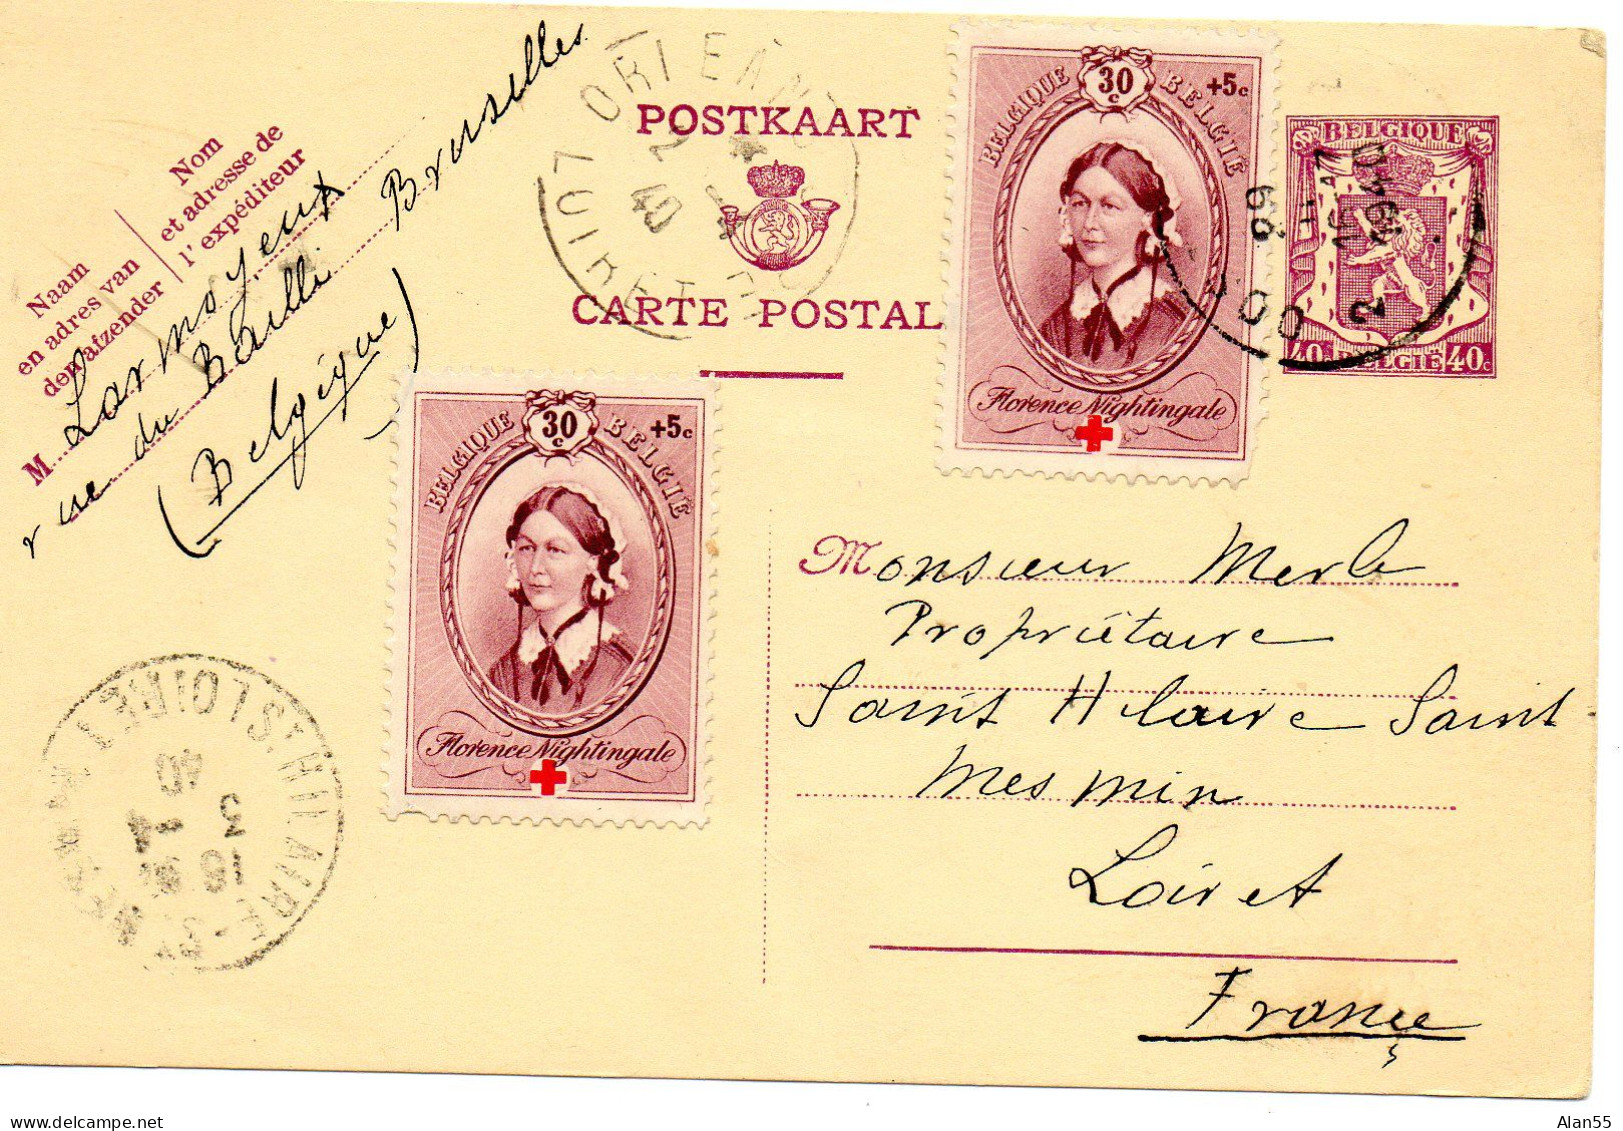 POSTKAART
CARTE POSTAL
Nom
et adresse de
l'expéditeur
Naam
en adres van
den afzender
M Larmoyeux
rue du Bailli Bruxelles
(Belgique)
BELGIQUE 30c BELGIË +5c
Florence Nightingale
BELGIQUE 30c BELGIË +5c
Florence Nightingale
BELGIQUE
40c BELGIË 40c
1940
ORLEANS
LOIRET
2
40
ST HILAIRE-ST
LOIRET
16
3 - 4
40
Monsieur Merle
Propriétaire
Saint Hilaire Saint
Mesmin
Loiret
France
Alan55